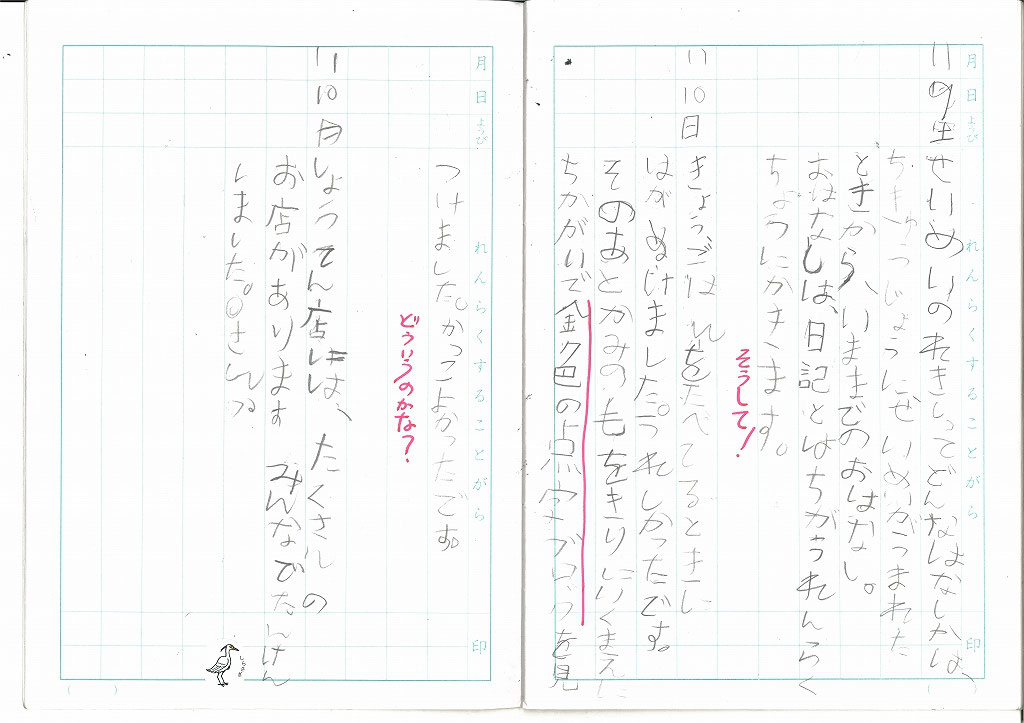 月日ようび　れんらくすることがら　印
11 9 月 せいめいのれきしってどんなはなしかは、
ちきゅうじょうにせいめいがうまれた
ときから、いままでのおはなし。
おはなしは、日記とはちがうれんらく
ちょうにかきます。
そうして！
11 10日 きょうごはんをたべてるときに
はがぬけました。うれしかったです。
そのあとかみのもをきりにいくまえに
ちかがいで金色の点字ブロックを見
月日ようび　れんらくすることがら　印
つけました。かっこよかったです。
どういうのかな？
11 10日 しょうてん店には、たくさんの
お店があります みんなでたんけん
しました。
しらさぎ